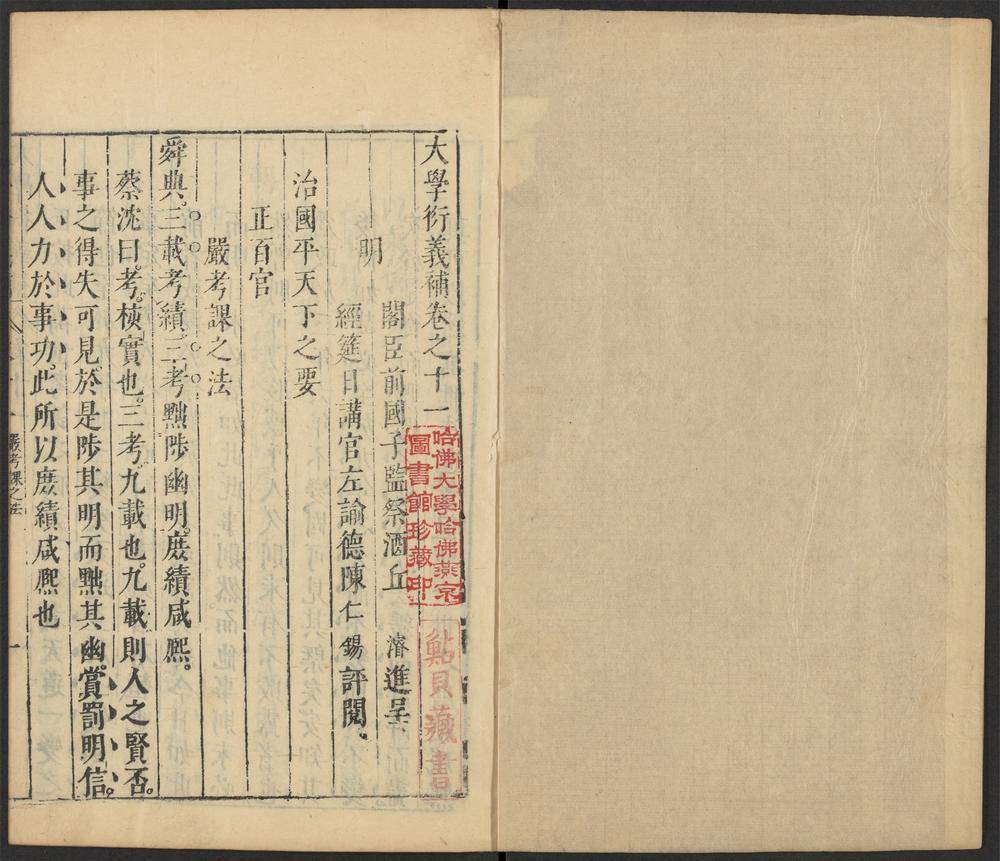 大學衍義補卷之十一
明
閣臣前國子監祭酒丘 濬進呈
經筵日講官左諭德陳仁錫評閱
治國平天下之要
正百官
嚴考課之法
舜典。三載考績。三考黜陟幽明。庶績咸熙。
蔡沈曰。考。核實也。三考。九載也。九載則人之賢否。
事之得失可見。於是陟其明而黜其幽。賞罰明信。
人人力於事功。此所以庶績咸熙也
嚴考課之法
一
哈佛大學哈佛燕京
圖書館珍藏印
鮎貝藏書